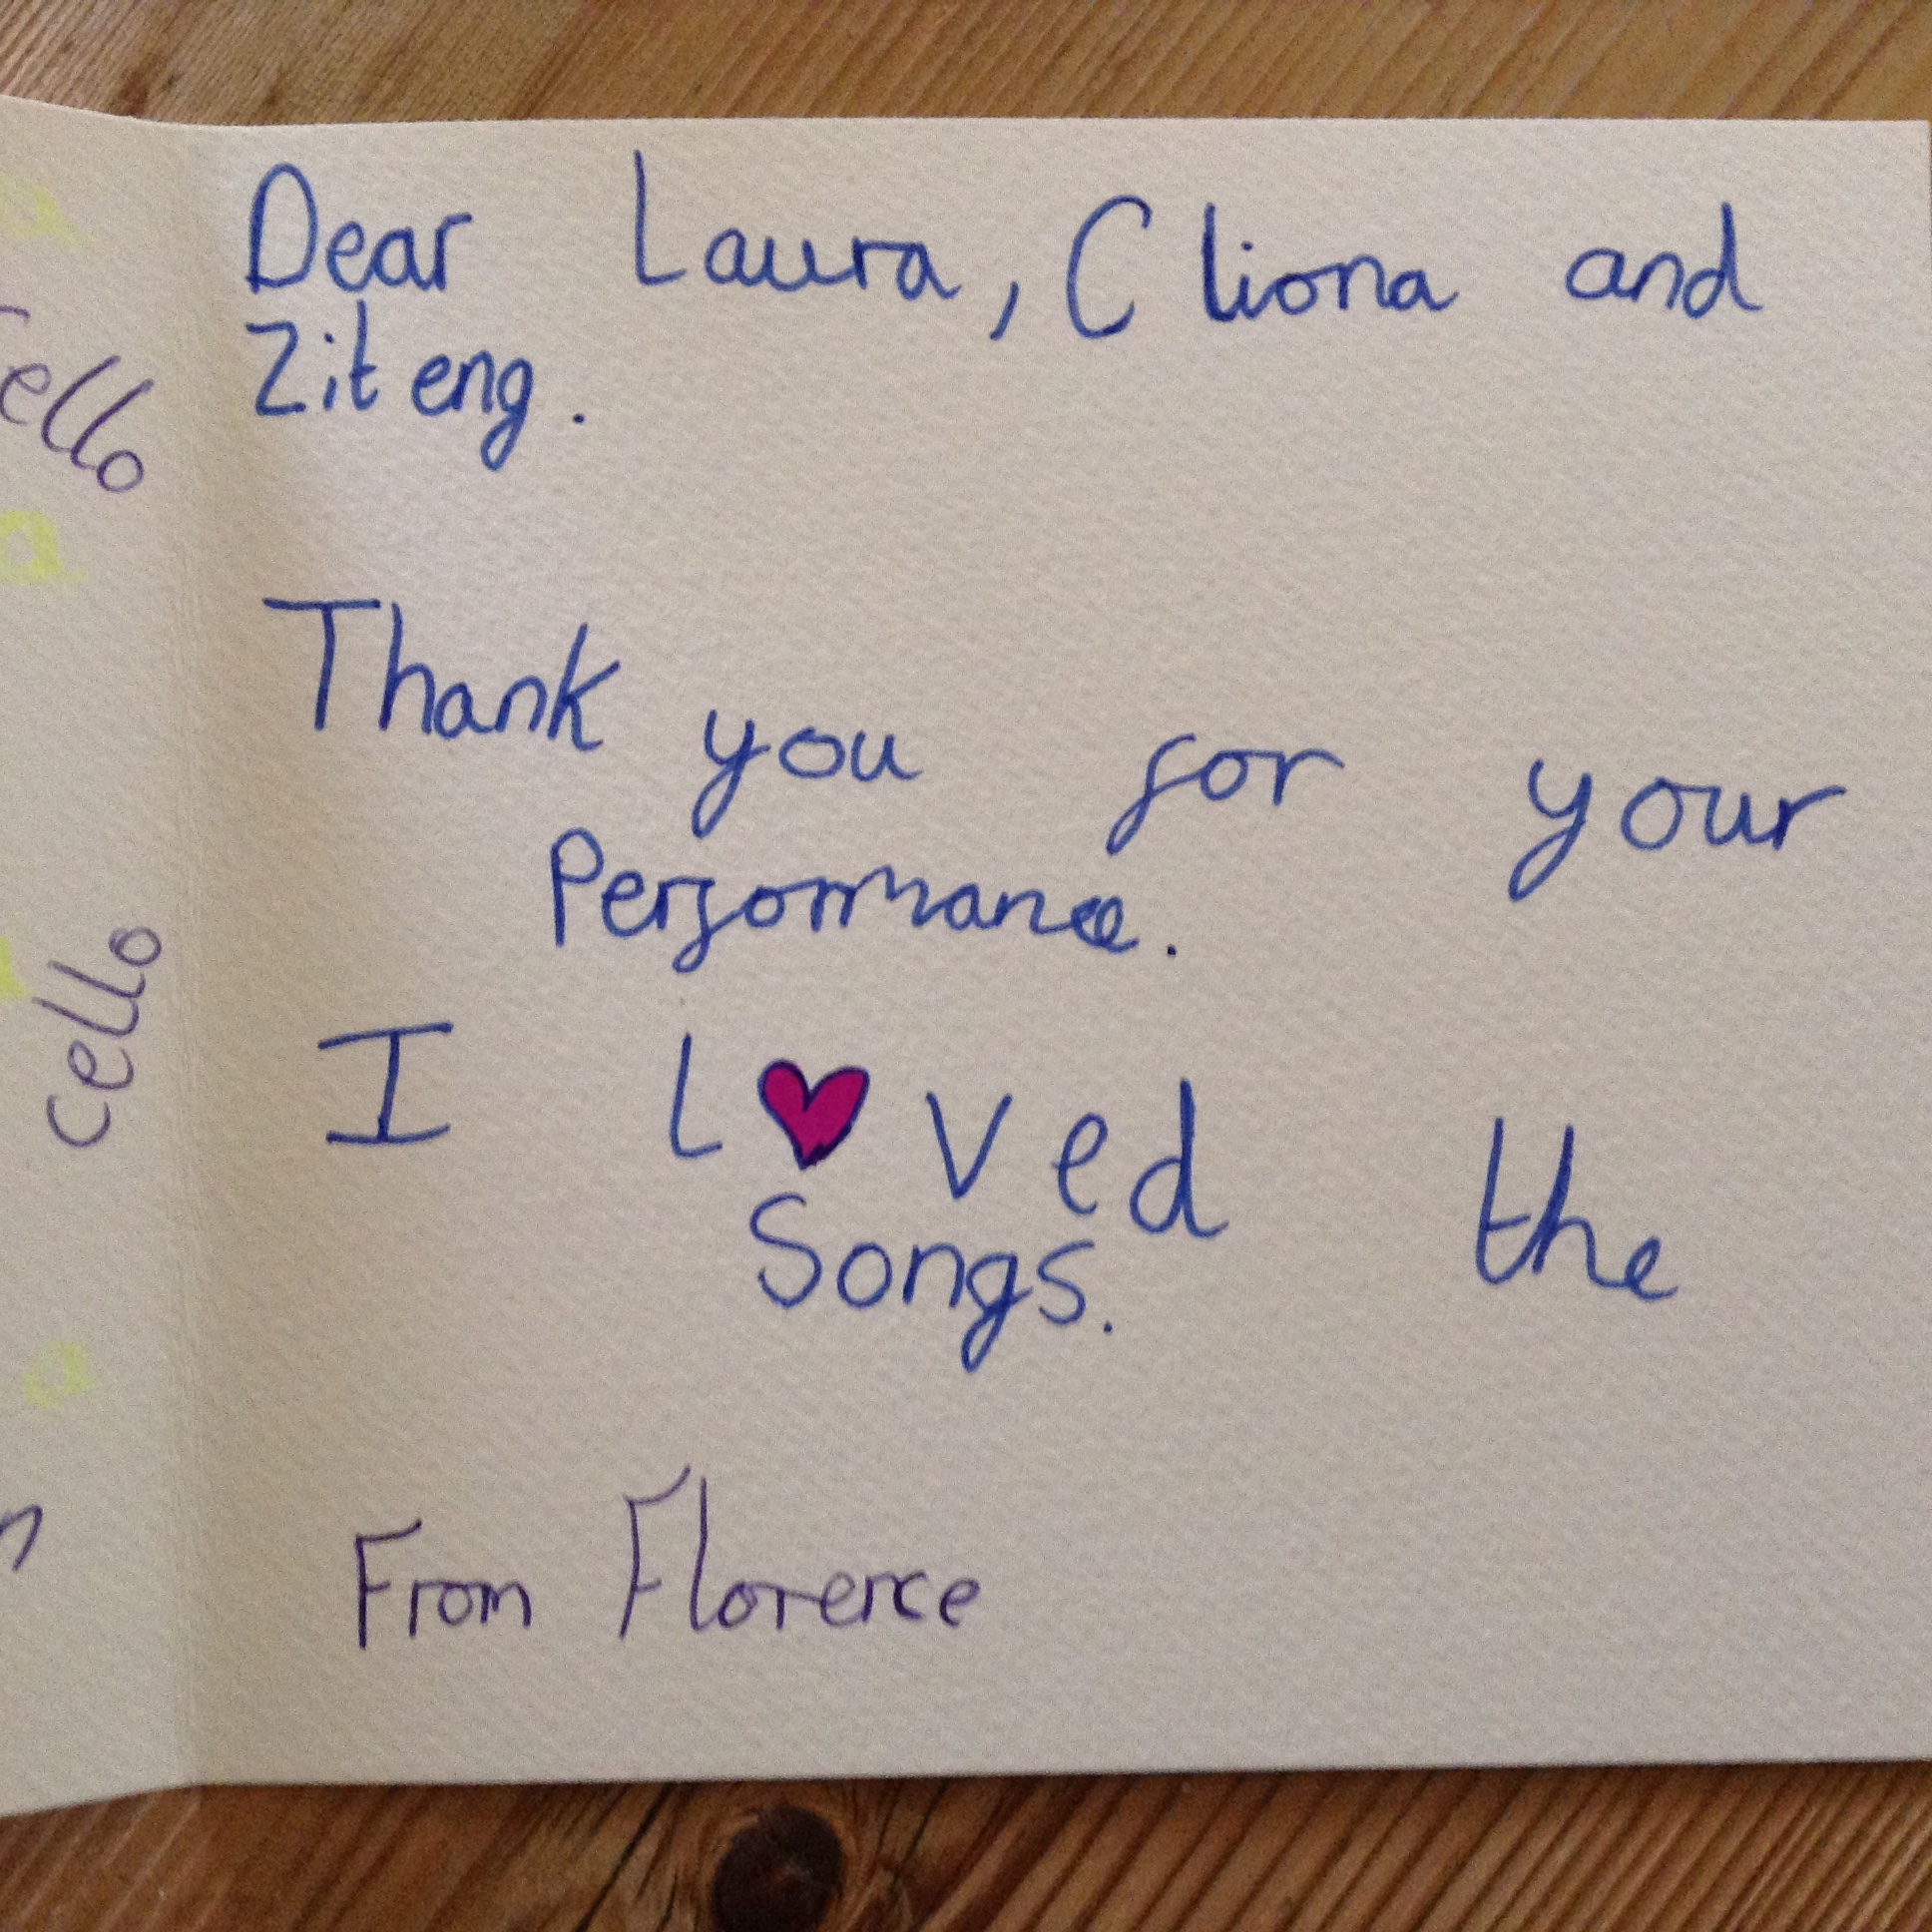 Dear Laura, Cliona and
Ziteng.
Thank you for your
Performance.
I L♥ved the
Songs.
From Florence
cello
cello